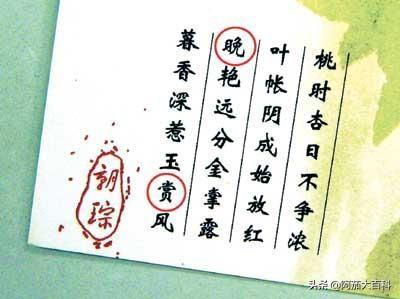 桃时杏日不争浓
叶帐阴成始放红
晚艳远分金掌露
暮香深惹玉赏风
朝琮
头条 @阿茄大百科